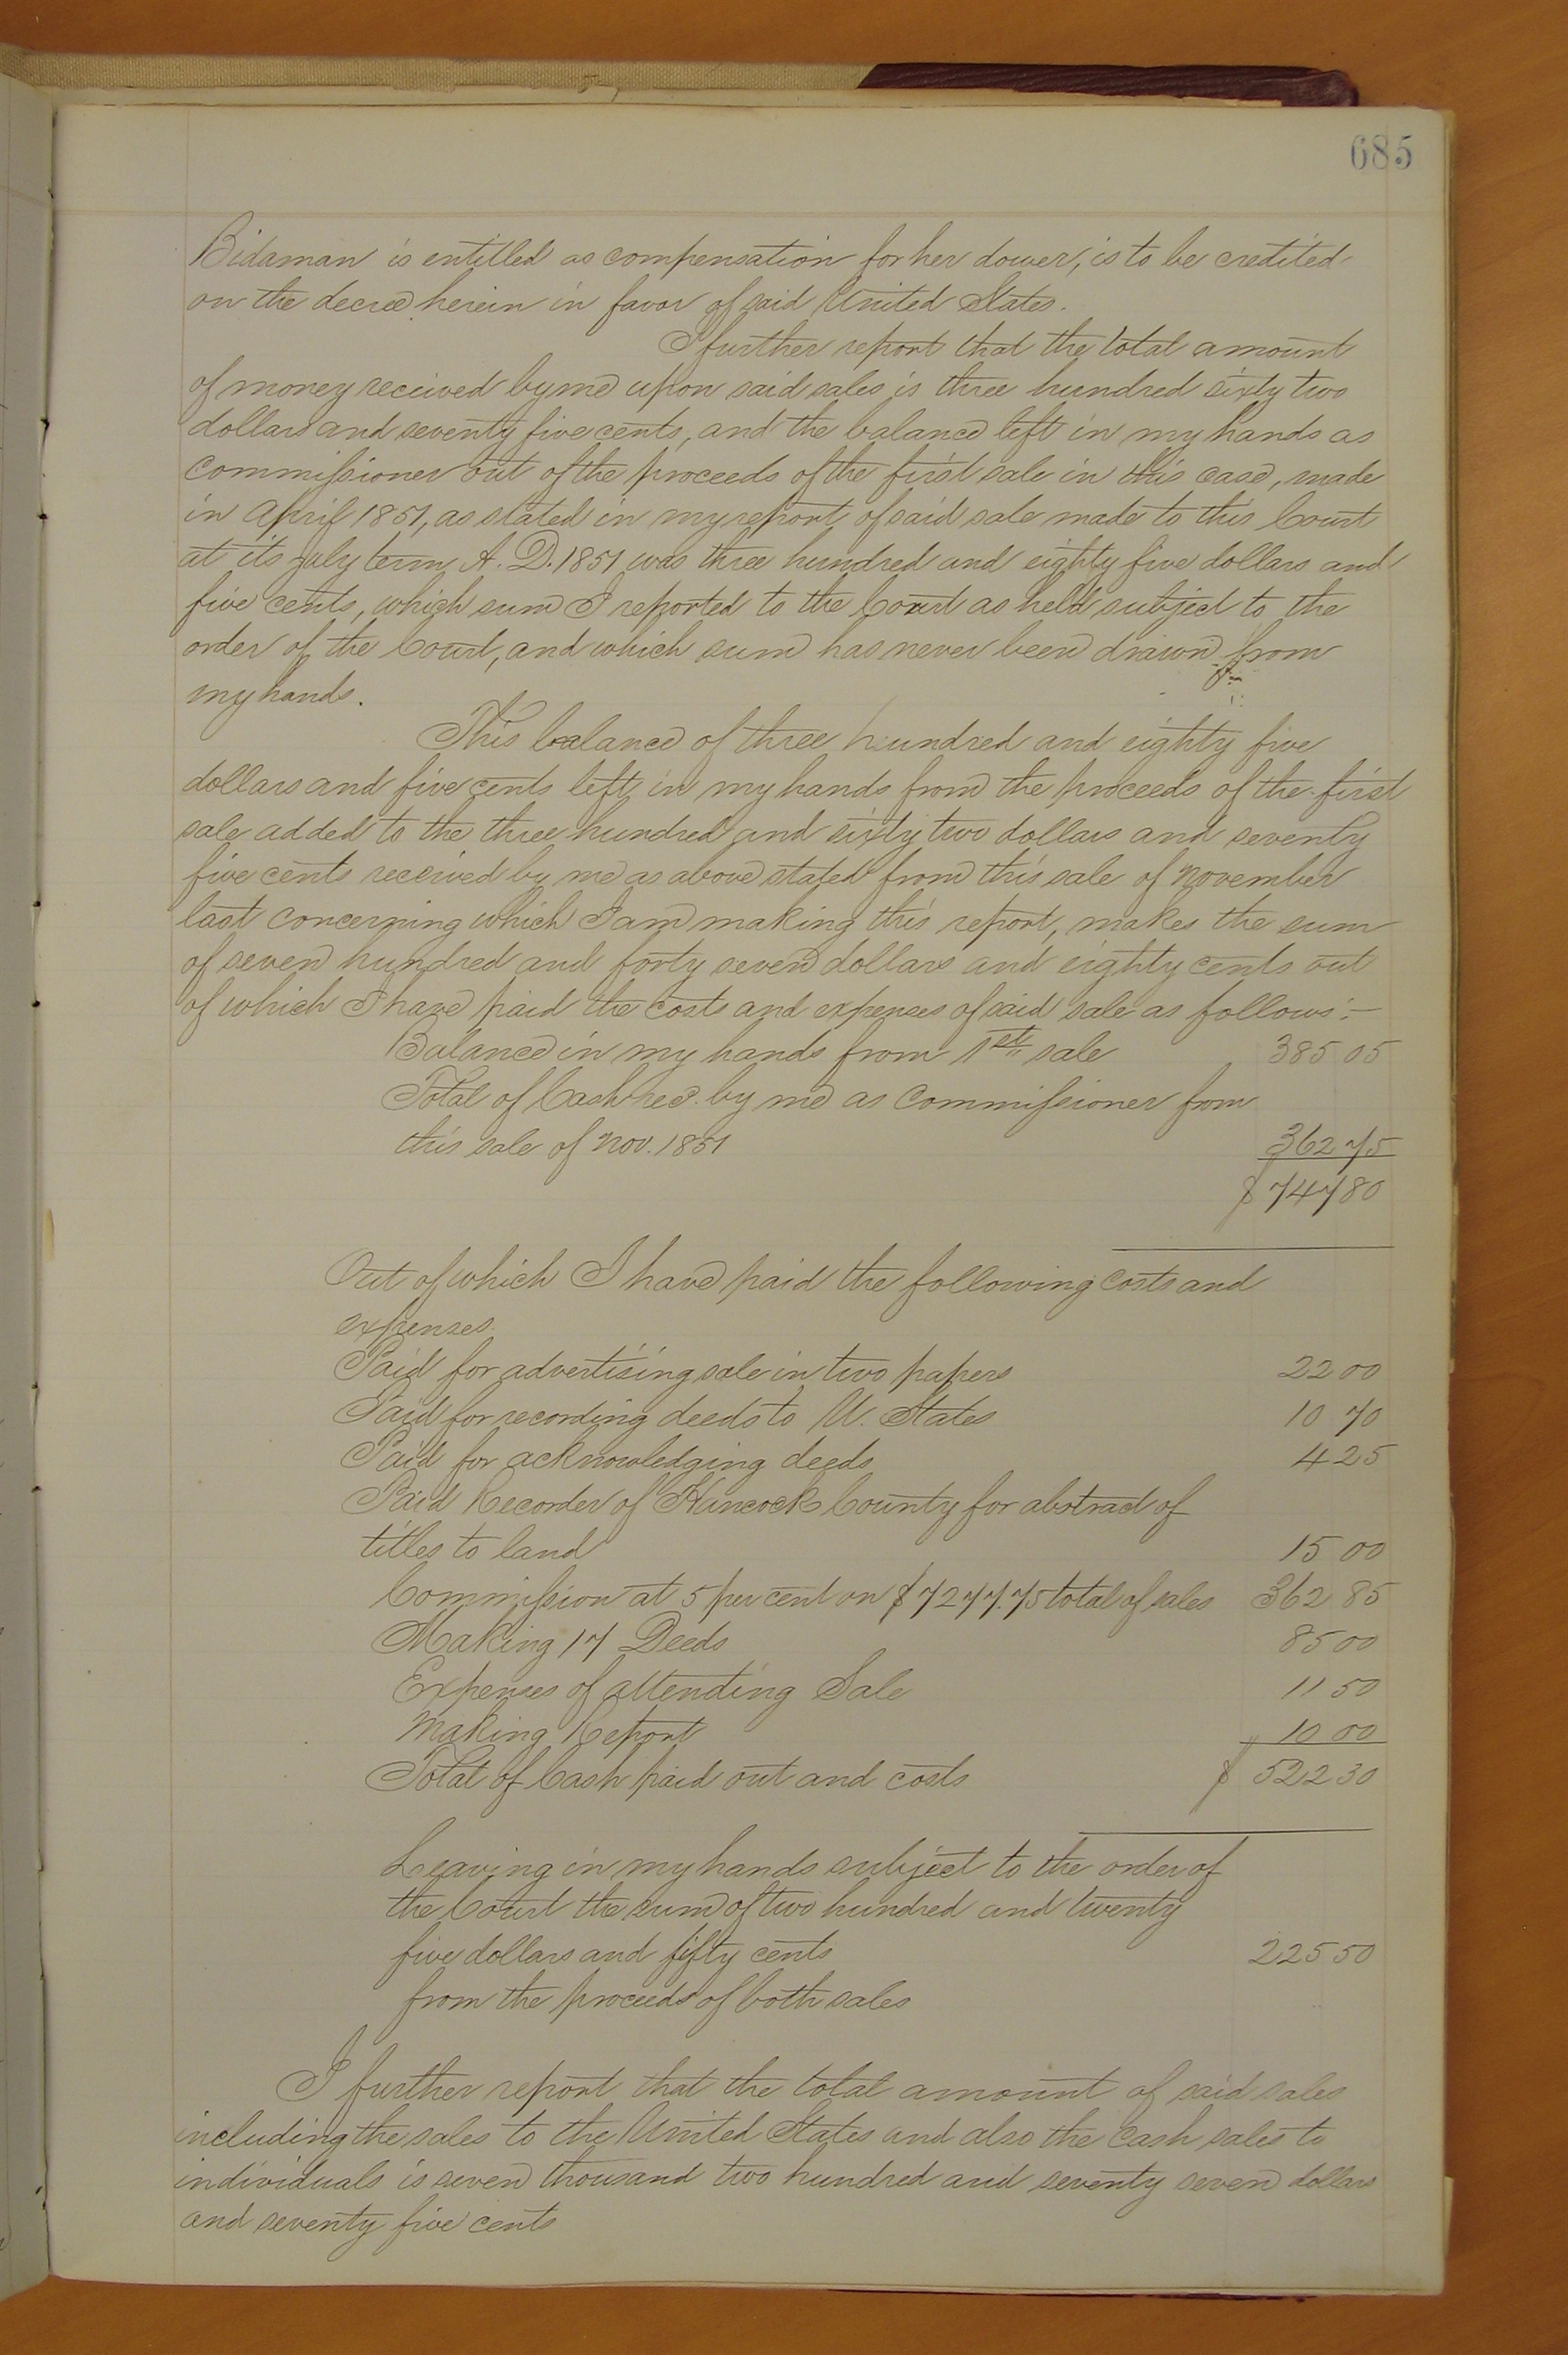 685
Bidaman is entitled as compensation for her dower, is to be credited
on the decree herein in favor of said United States.
I further report that the total amount
of money received by me upon said sales is three hundred sixty two
dollars and seventy five cents, and the balance left in my hands as
Commissioner out of the proceeds of the first sale in this case, made
in April 1851, as stated in my report of said sale made to this Court
at its July term A. D. 1851 was three hundred and eighty five dollars and
five cents, which sum I reported to the Court as held subject to the
order of the Court, and which sum has never been drawn from
my hands.
This balance of three hundred and eighty five
dollars and five cents left in my hands from the proceeds of the first
sale added to the three hundred and sixty two dollars and seventy
five cents received by me as above stated from this sale of November
last concerning which I am making this report, makes the sum
of seven hundred and forty seven dollars and eighty cents out
of which I have paid the costs and expenses of said sale as follows:-
Balance in my hands from 1st sale 385 05
Total of Cash rec'd. by me as Commissioner from
this sale of Nov. 1851 362 75
$ 747 80
Out of which I have paid the following costs and
expenses.
Paid for advertising sale in two papers 22 00
Paid for recording deeds to U. States 10 70
Paid for acknowledging deeds 4 25
Paid Recorder of Hancock County for abstract of
titles to land 15 00
Commission at 5 per cent on $7277.75 total of sales 362 85
Making 17 Deeds 85 00
Expenses of attending Sale 11 50
Making Report 10 00
Total of Cash paid out and costs $ 522 30
Leaving in my hands subject to the order of
the Court the sum of two hundred and twenty
five dollars and fifty cents 225 50
from the proceeds of both sales
I further report that the total amount of said sales
including the sales to the United States and also the cash sales to
individuals is seven thousand two hundred and seventy seven dollars
and seventy five cents